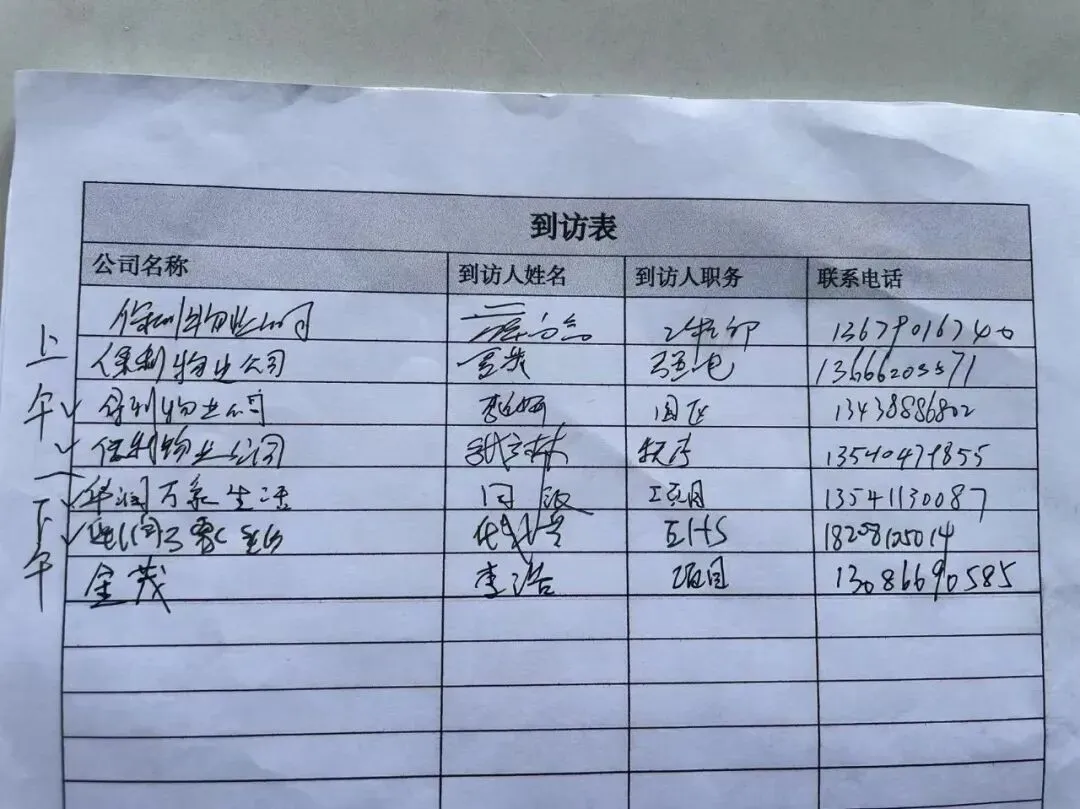 到访表
公司名称 到访人姓名 到访人职务 联系电话
保利物业公司 工程部 13679016740
上午
保利物业公司 强电 13666205571
保利物业公司 13438886802
保利物业公司 13540479855
下午
华润万象生活 闫 项目 13541130087
华润万象生活 EHS 18208125014
金茂 李浩 项目 13086690585